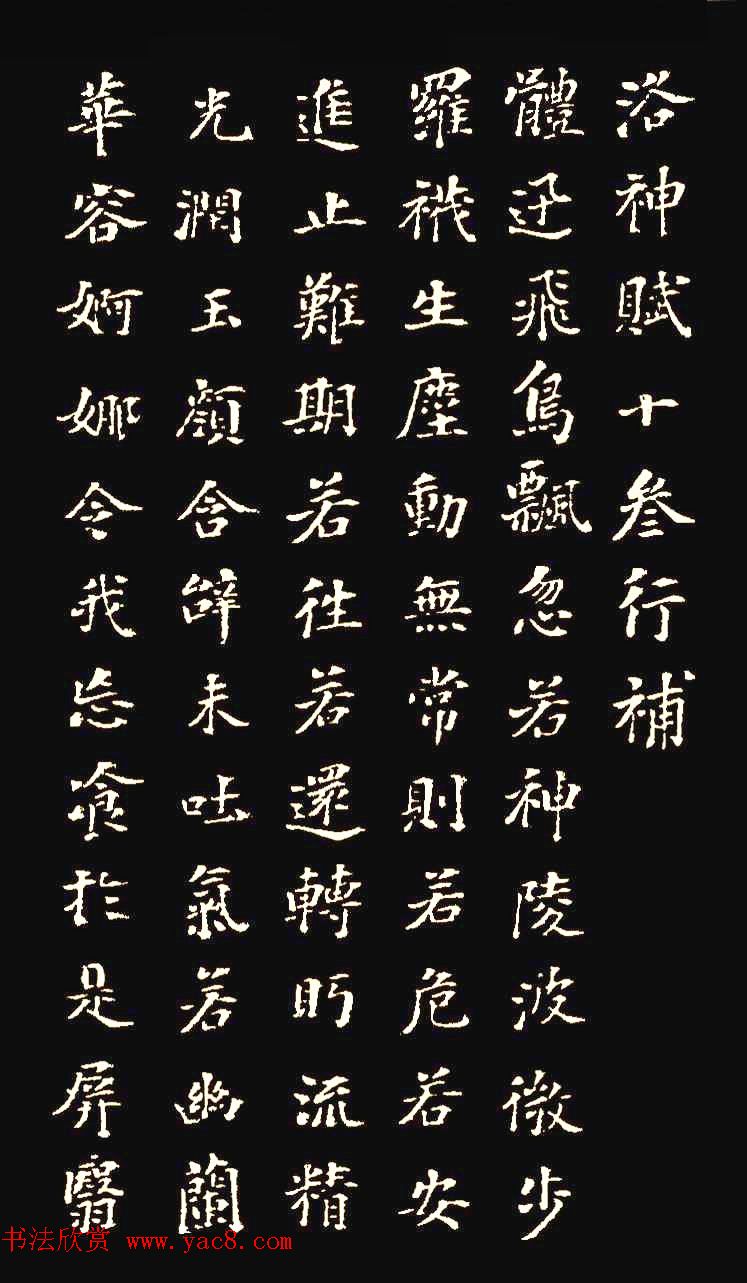 洛神賦十叁行補
體迅飛鳥飄忽若神陵波微步
羅襪生塵動無常則若危若安
進止難期若往若還轉眄流精
光潤玉顏含辭未吐氣若幽蘭
華容婀娜令我忘飡於是屏翳
书法欣赏 www.yac8.com